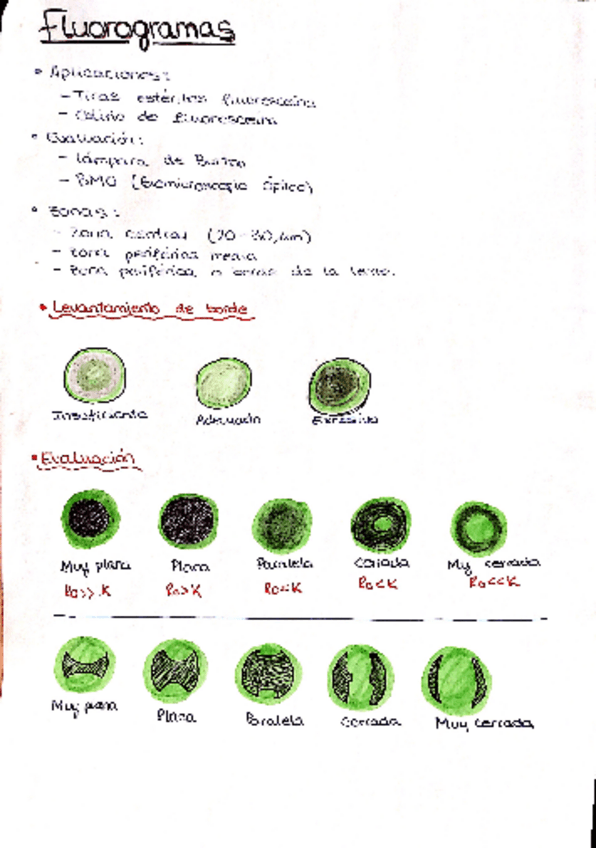 Fluorogramas
• Aplicaciones:
- Tiras estériles fluoresceína
- Colirio de fluoresceína
• Evaluación:
- Lámpara de Burton
- BMO (Biomicroscopio óptico)
• Zonas:
- Zona central (20-30 µm)
- Zona periférica media
- Zona periférica o borde de la lente.
• Levantamiento de borde
Insuficiente Adecuado Excesivo
• Evaluación
Muy plana Plana Paralela Cerrada Muy cerrada
Ro>>K Ro>K Ro=K Ro<K Ro<<K
Muy plana Plana Paralela Cerrada Muy cerrada